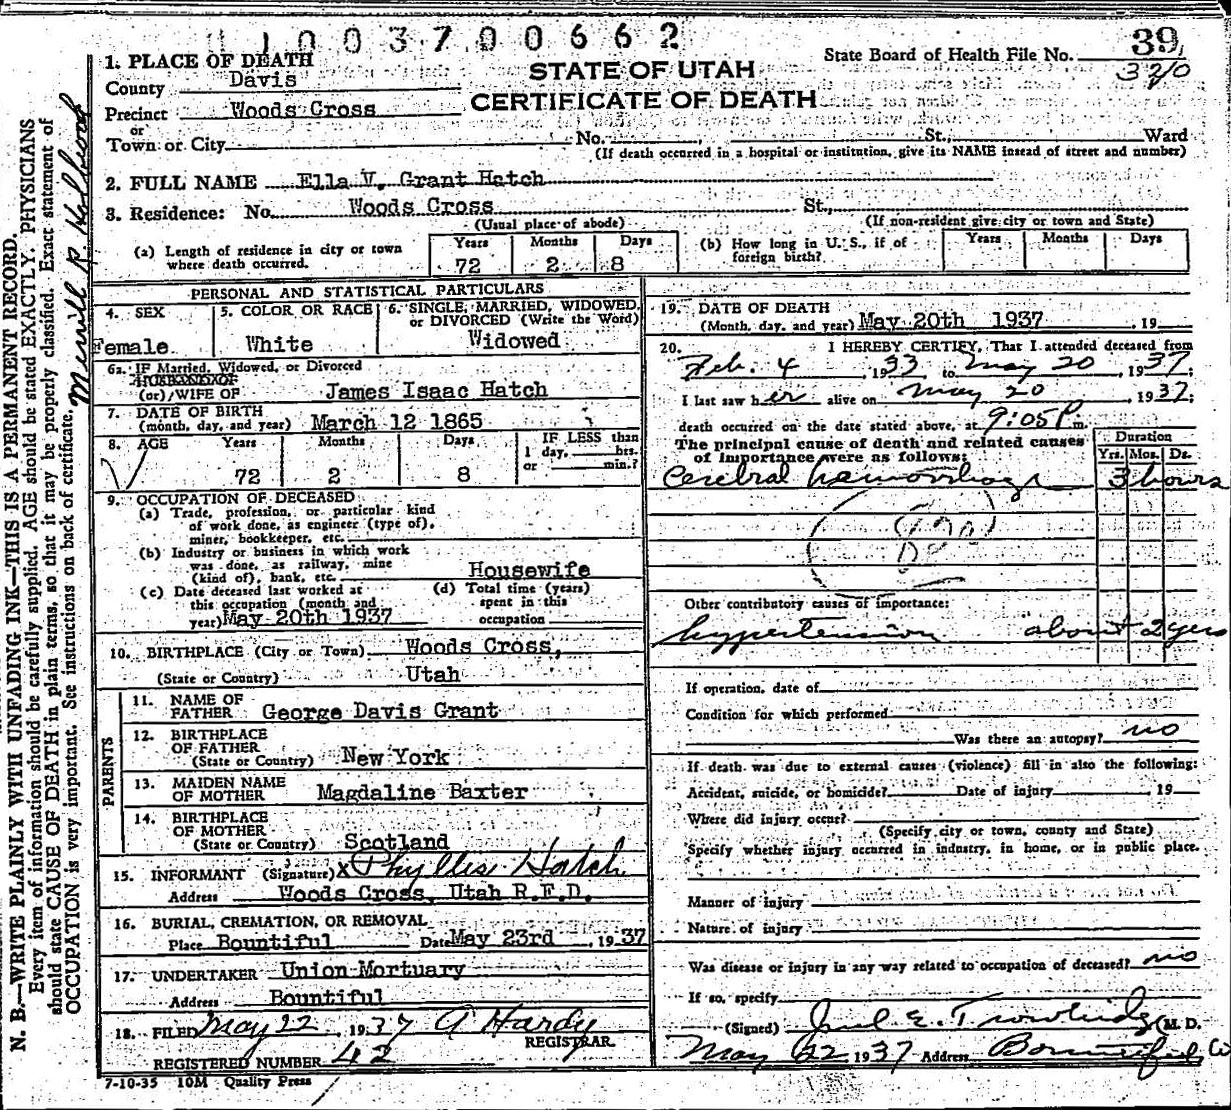 1003700662
State Board of Health File No. 39
320
1. PLACE OF DEATH
County Davis
STATE OF UTAH
CERTIFICATE OF DEATH
Precinct Woods Cross
or
Town or City No. St., Ward
(If death occurred in a hospital or institution, give its NAME instead of street and number)
2. FULL NAME Ella V. Grant Hatch
3. Residence: No. Woods Cross St.,
(Usual place of abode) (If non-resident give city or town and State)
(a) Length of residence in city or town where death occurred. Years 72 Months 2 Days 8
(b) How long in U. S., if of foreign birth? Years Months Days
PERSONAL AND STATISTICAL PARTICULARS
4. SEX Female
5. COLOR OR RACE White
6. SINGLE, MARRIED, WIDOWED, or DIVORCED (Write the Word) Widowed
6a. IF Married, Widowed, or Divorced
HUSBAND OF
(or) WIFE OF James Isaac Hatch
7. DATE OF BIRTH
(month, day, and year) March 12 1865
8. AGE Years 72 Months 2 Days 8 IF LESS than 1 day, hrs. or min.?
9. OCCUPATION OF DECEASED
(a) Trade, profession, or particular kind
of work done, as engineer (type of),
miner, bookkeeper, etc.
(b) Industry or business in which work
was done, as railway, mine
(kind of), bank, etc. Housewife
(c) Date deceased last worked at
this occupation (month and
year) May 20th 1937
(d) Total time (years)
spent in this
occupation
10. BIRTHPLACE (City or Town) Woods Cross,
(State or Country) Utah
PARENTS
11. NAME OF
FATHER George Davis Grant
12. BIRTHPLACE
OF FATHER
(State or Country) New York
13. MAIDEN NAME
OF MOTHER Magdaline Baxter
14. BIRTHPLACE
OF MOTHER
(State or Country) Scotland
15. INFORMANT (Signature) x Phyllis Hatch
Address Woods Cross, Utah R.F.D.
16. BURIAL, CREMATION, OR REMOVAL
Place Bountiful Date May 23rd, 1937
17. UNDERTAKER Union Mortuary
Address Bountiful
18. FILED May 22 1937 A Hardy
REGISTRAR
REGISTERED NUMBER 42
7-10-35 10M Quality Press
19. DATE OF DEATH
(Month, day, and year) May 20th 1937, 19
20. I HEREBY CERTIFY, That I attended deceased from
Feb. 4 1933 to May 20, 1937
I last saw her alive on May 20 1937;
death occurred on the date stated above, at 9:05 P m.
The principal cause of death and related causes
of importance were as follows:
Duration
Yrs. Mos. Ds.
Cerebral hemorrhage 3 hours
Other contributory causes of importance:
hypertension about 2 yrs
If operation, date of
Condition for which performed
Was there an autopsy? no
If death was due to external causes (violence) fill in also the following:
Accident, suicide, or homicide? Date of injury 19
Where did injury occur?
(Specify city or town, county and State)
Specify whether injury occurred in industry, in home, or in public place.
Manner of injury
Nature of injury
Was disease or injury in any way related to occupation of deceased? no
If so, specify
(Signed) E. Trowbridge (M. D.
May 22 1937 Address Bountiful
N. B.—WRITE PLAINLY WITH UNFADING INK—THIS IS A PERMANENT RECORD.
Every item of information should be carefully supplied. AGE should be stated EXACTLY. PHYSICIANS
should state CAUSE OF DEATH in plain terms, so that it may be properly classified. Exact statement of
OCCUPATION is very important. See instructions on back of certificate.
Merrill R. Holbrook